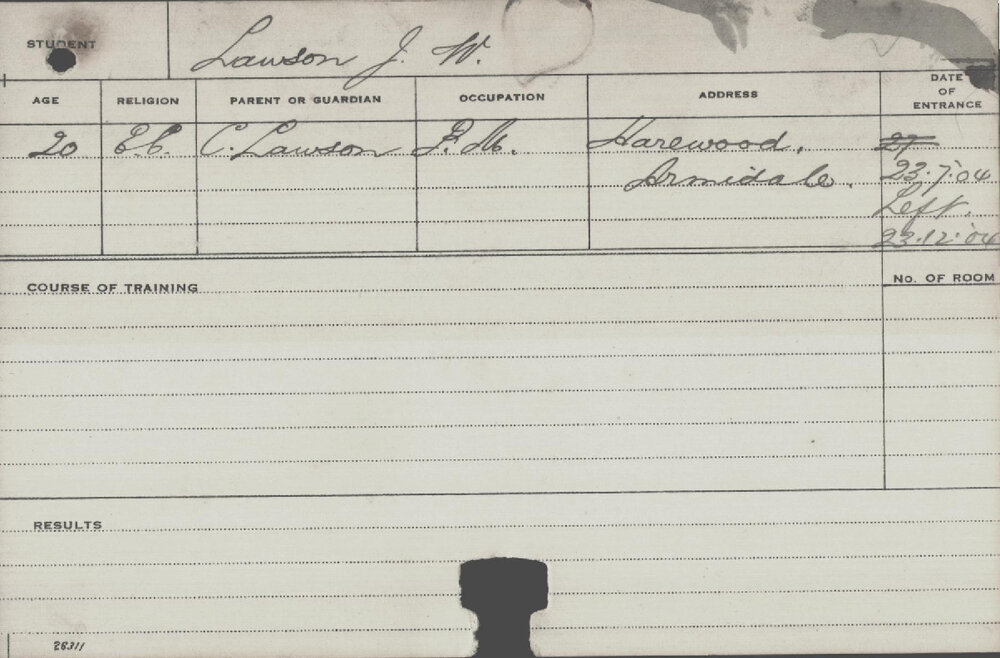 STUDENT Lawson J. W.
AGE RELIGION PARENT OR GUARDIAN OCCUPATION ADDRESS DATE OF ENTRANCE
20 C. Lawson Harewood, 27
Armidale. 23.7.04
Left.
23.12.'04
COURSE OF TRAINING No. OF ROOM
RESULTS
26311